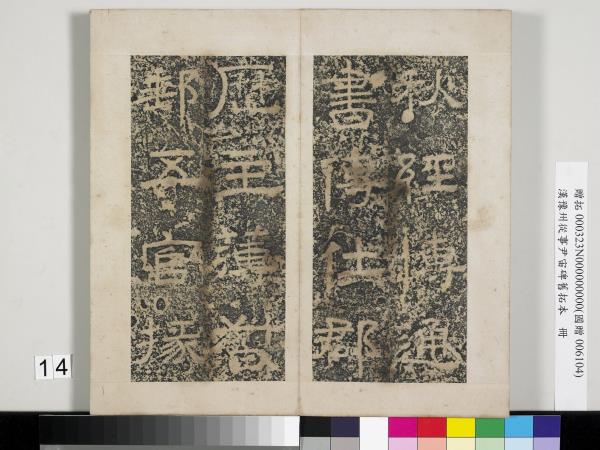 秋經博通
書傳仕郡
歷主薄督
郵五官掾
贈拓 000323N000000000(國贈 006104)
漢豫州從事尹宙碑舊拓本 冊
14